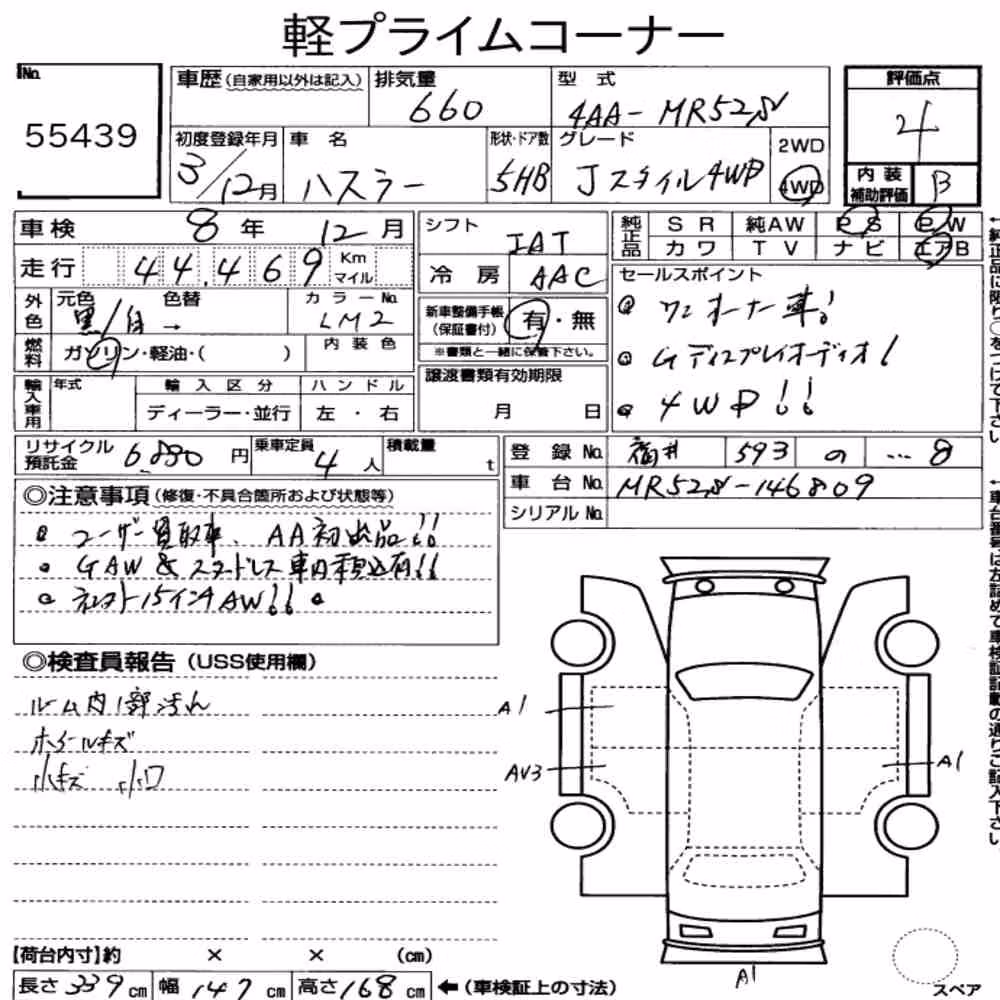 軽プライムコーナー
No.
55439
車歴(自家用以外は記入)
排気量
660
型 式
4AA-MR52S
評価点
4
初度登録年月
3/12月
車 名
ハスラー
形状・ドア数
5HB
グレード
Jスタイル4WD
2WD
4WD
内装
補助評価
B
車検 8年 12月
シフト
IAT
純正品
SR 純AW PS PW
カワ TV ナビ エアB
走行 44,469 Km マイル
冷房 AAC
セールスポイント
ワンオーナー車!
Gディスプレイオーディオ!
4WD!!
外色
元色 黒/白→
色替
カラーNo.
LM2
新車整備手帳
(保証書付)
有・無
※書類と一緒に保管下さい。
燃料
ガソリン・軽油・( )
内装色
輸入車用
年式
輸入区分
ディーラー・並行
ハンドル
左・右
譲渡書類有効期限
月 日
リサイクル
預託金
6,880円
乗車定員
4人
積載量
t
登録No. 福井 593 の …8
車台No. MR52S-146809
シリアルNo.
◎注意事項(修復・不具合箇所および状態等)
ユーザー買取車、AA初出品!!
GAW&スタッドレス車内積込有!!
15インチAW!!
◎検査員報告(USS使用欄)
ルーム内1部汚れ
ホイールキズ
小キズ 小凹
A1
AV3
A1
A1
【荷台内寸】約 × × (cm)
長さ339cm 幅147cm 高さ168cm
←(車検証上の寸法)
スペア
←純正品に限り○をつけて下さい
←車台番号は左詰めで車検証記載の通りご記入下さい